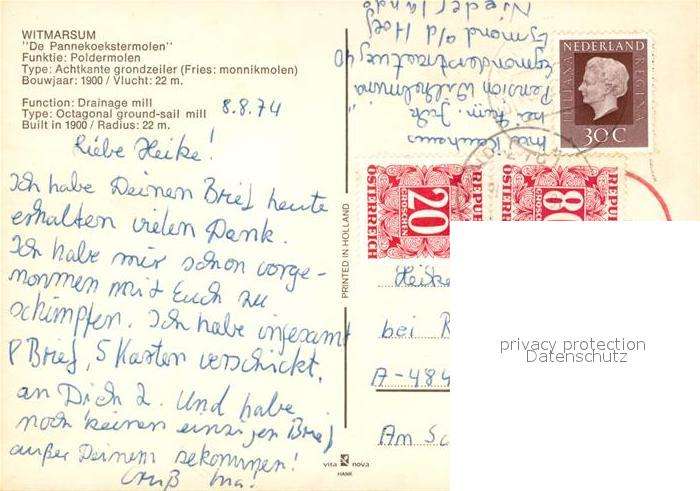 WITMARSUM
"De Pannekoekstermolen"
Funktie: Poldermolen
Type: Achtkante grondzeiler (Fries: monnikmolen)
Bouwjaar: 1900 / Vlucht: 22 m.
Function: Drainage mill
Type: Octagonal ground-sail mill
Built in 1900 / Radius: 22 m.
8.8.74
Liebe Heike!
Ich habe Deinen Brief heute
erhalten vielen Dank.
Ich habe mir schon vorge-
nommen mit Euch zu
schimpfen. Ich habe insgesamt
8 Brief, 5 Karten verschickt.
an Dich 2. Und habe
noch keinen einzigen Brief
außer Deinem bekommen!
Gruß Ina!
PRINTED IN HOLLAND
vita nova
HANK
Ina
bei Fam.
Pension Wilhelmina
Egmonderstraatweg 40
Egmond a/d Hoef
Niederlande
NEDERLAND
JULIANA REGINA
30 C
REPUBLIK
20
GROSCHEN
ÖSTERREICH
REPU
80
GROSCHEN
ÖSTERREICH
Heike
bei
A-484
An Sc
privacy protection
Datenschutz